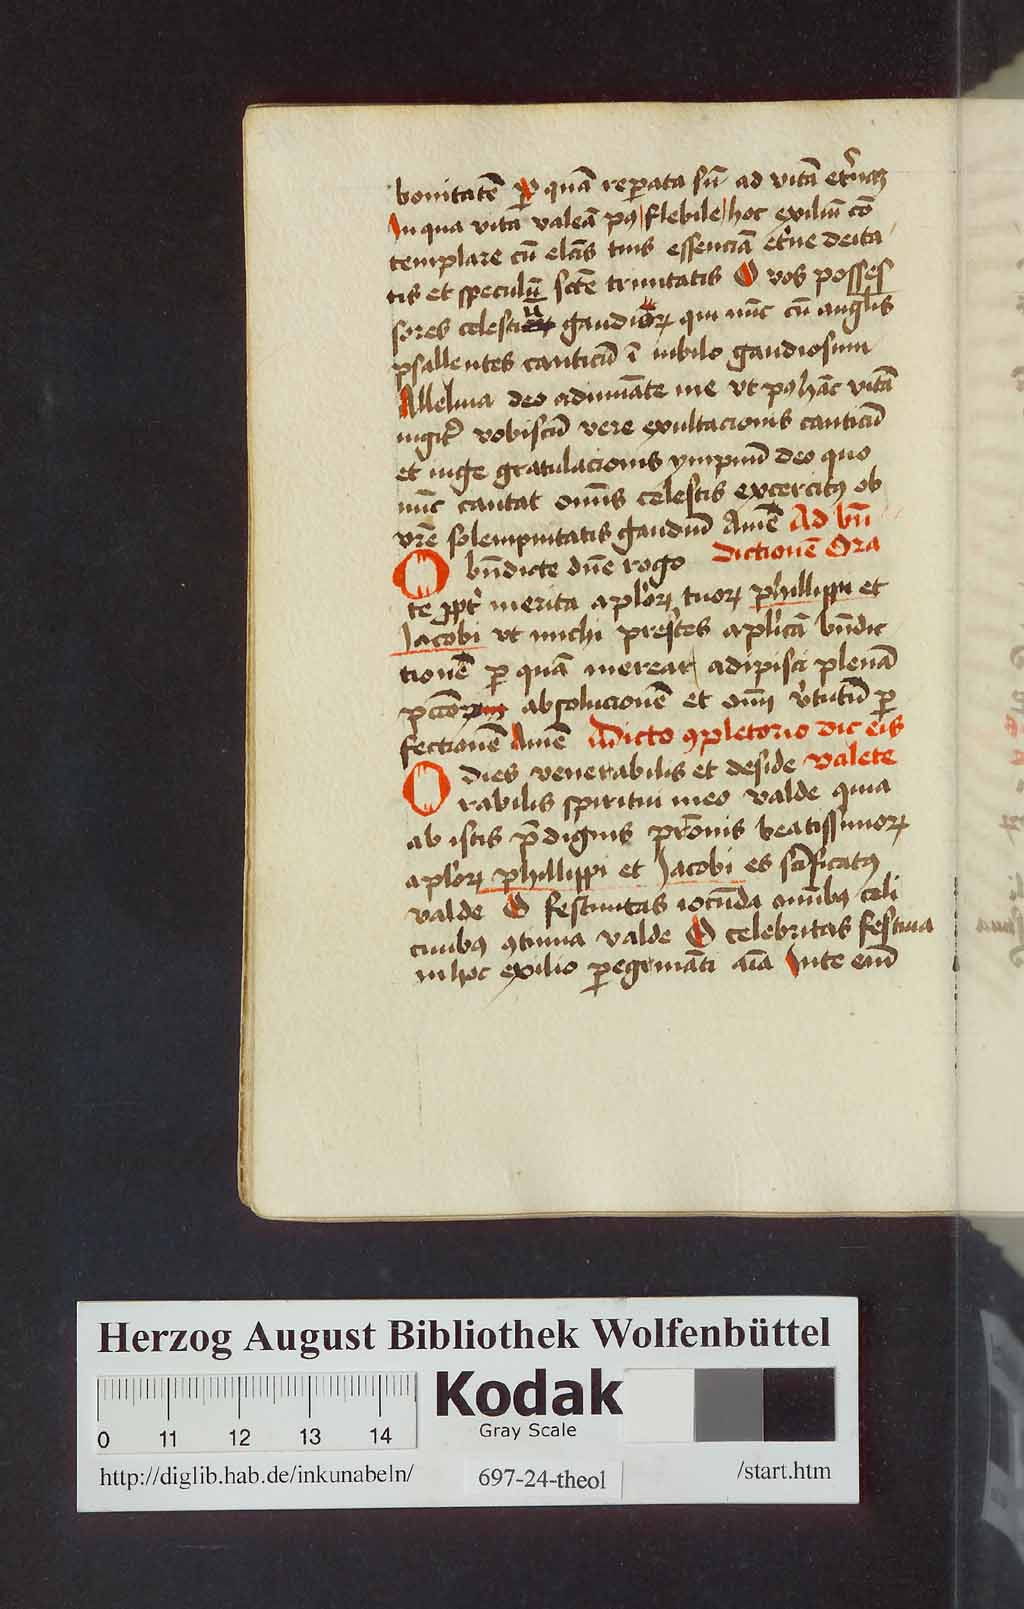 bonitatē ꝑ quā reperata sū ad vitā et̄nā
In qua vita valeā pꝰ flebile hoc exiliū cō
templare cū elc̄is tuis essenciā et̄ne deita
tis et speculū sctē trinitatis O vos posses
sores celestiū gaudioꝝ qui nūc cū anglis
psallentes canticū ī iubilo gaudiosum
Alleluia deo adiuuāte me vt pꝰ hāc vitā
iugit̄ vobiscū vere exultacionis canticū
et iuge gratulacionis ympnū deo quo
nūc cantat omīs celestis excercitꝰ ob
vr̄e solempnitatis gaudiū Amē Ad bn̄
dictionē Ora
O bn̄dicte dn̄e rogo
te ꝓpt̄ merita aplōꝝ tuoꝝ phillippi et
Jacobi vt michi prestes aplicā bn̄dic
tionē ꝑ quā merear adipisci plenā
pccōꝝ absolucionē et om̄i v̄tutū ꝑ
fectionē Amē Dicto ꝯpletorio dic eis
valete
O dies venerabilis et deside
rabilis spiritui meo valde quia
ab istis p̄dignis pr̄onis beatissimoꝝ
aploꝝ phillippi et Jacobi es sc̄ificatꝰ
valde O festiuitas iocūda omībꝰ celi
ciuibꝰ ꝯtinua valde O celebritas festiua
in hoc exilio ꝑegrināti aīa In te enī
Herzog August Bibliothek Wolfenbüttel
Kodak
Gray Scale
0 11 12 13 14
http://diglib.hab.de/inkunabeln/ 697-24-theol /start.htm